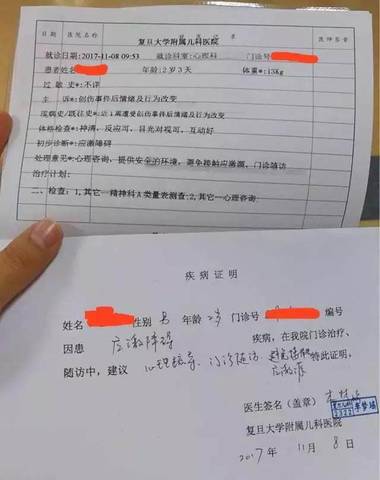 日期 医院名称 病情记录 医师签章
复旦大学附属儿科医院
就诊日期:2017-11-08 09:53 就诊科室:心理科 门诊号
患者姓名 年龄:2岁3天 体重*:13Kg
过敏史*:不详
主 诉*:创伤事件后情绪及行为改变
现病史/既往史*:近1周遭受创伤事件后情绪及行为改变
体格检查*:神清,反应可,目光对视可,互动好
初步诊断*:应激障碍
处理意见*:心理咨询,提供安全的环境,避免接触应激源,门诊随访
治疗计划:
二、检查:1,其它--精神科A类量表测查;2,其它--心理咨询
疾病证明
姓名 性别 男 年龄 2岁 门诊号 编号
因患 应激障碍 疾病,在我院门诊治疗、
随访中,建议 心理疏导、门诊随访 避免接触 特此证明,
应激源
医生签名(盖章)
复旦大学附属儿科医院
2017年 11月 8日